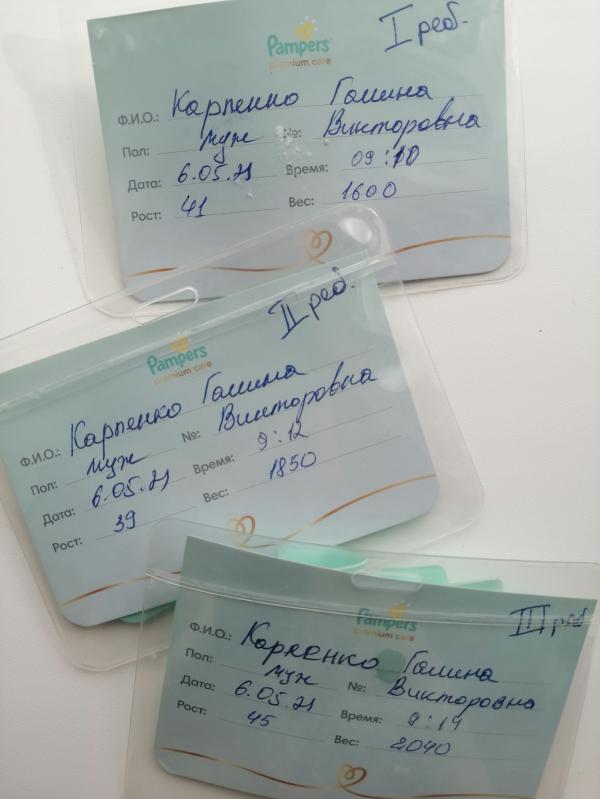 I реб.
Pampers
premium care
Ф.И.О.: Карпенко Галина
Пол: муж №: Викторовна
Дата: 6.05.21 Время: 09:10
Рост: 41 Вес: 1600
II реб.
Pampers
premium care
Ф.И.О.: Карпенко Галина
Пол: муж №: Викторовна
Дата: 6.05.21 Время: 9:12
Рост: 39 Вес: 1850
III реб
Pampers
premium care
Ф.И.О.: Карпенко Галина
Пол: муж №: Викторовна
Дата: 6.05.21 Время: 9:14
Рост: 45 Вес: 2040